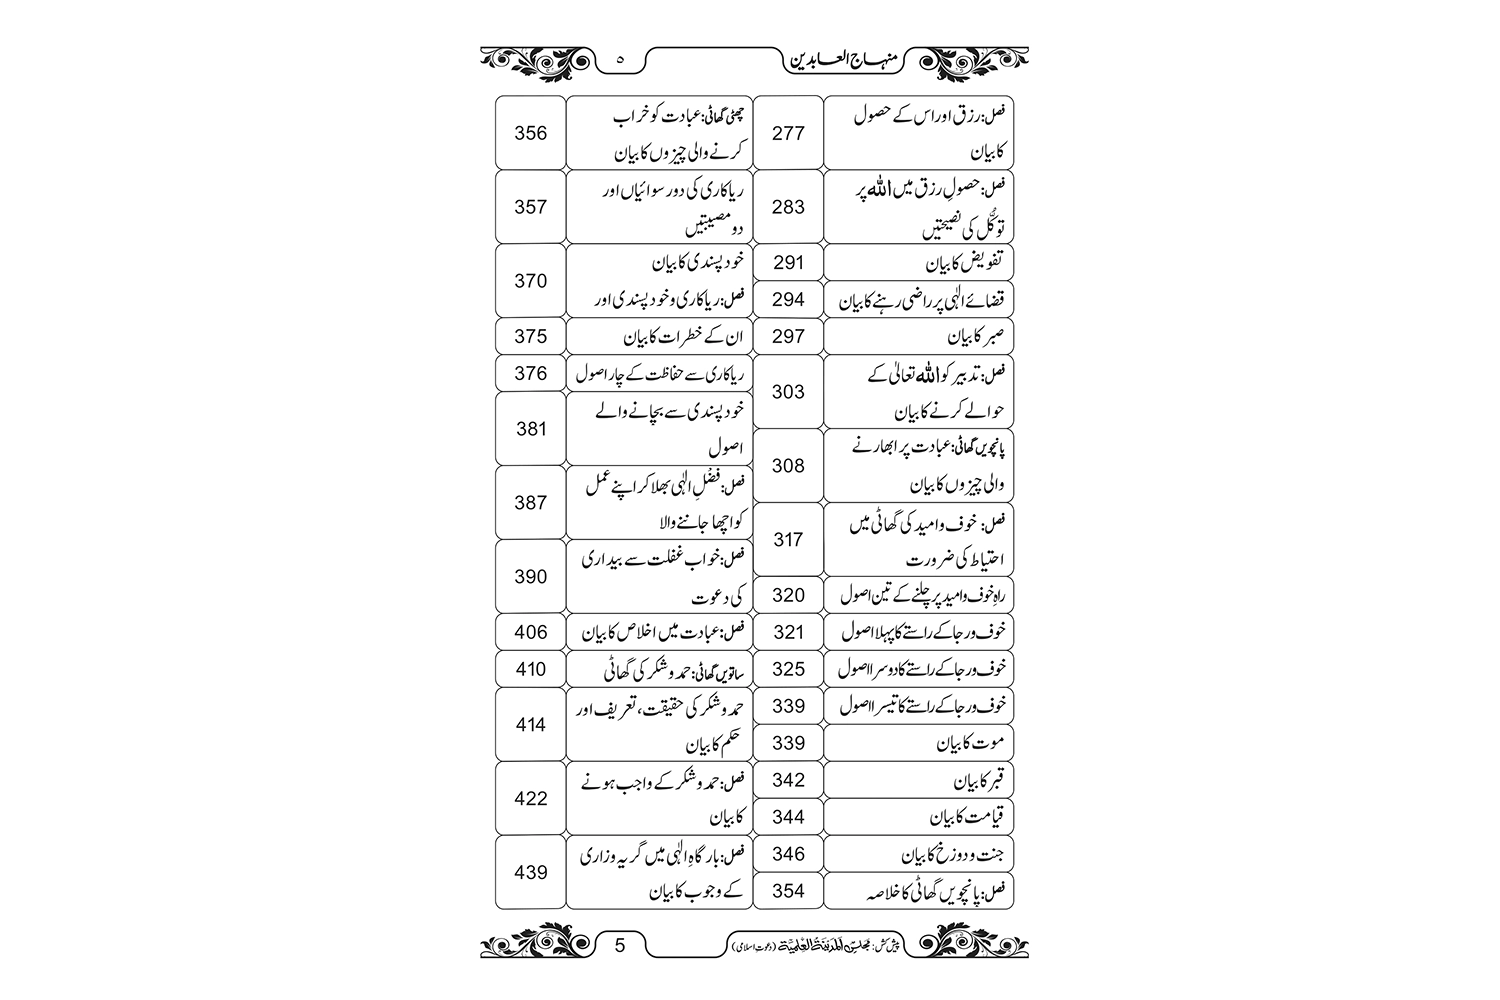 منہاج العابدین
٥
فصل: رزق اور اس کے حصول
کا بیان
277
فصل: حصولِ رزق میں اللہ پر
توکُّل کی نصیحتیں
283
تفویض کا بیان
291
قضائے الٰہی پر راضی رہنے کا بیان
294
صبر کا بیان
297
فصل: تدبیر کو اللہ تعالیٰ کے
حوالے کرنے کا بیان
303
پانچویں گھاٹی: عبادت پر ابھارنے
والی چیزوں کا بیان
308
فصل: خوف و امید کی گھاٹی میں
احتیاط کی ضرورت
317
راہِ خوف و امید پر چلنے کے تین اصول
320
خوف و رجا کے راستے کا پہلا اصول
321
خوف و رجا کے راستے کا دوسرا اصول
325
خوف و رجا کے راستے کا تیسرا اصول
339
موت کا بیان
339
قبر کا بیان
342
قیامت کا بیان
344
جنت و دوزخ کا بیان
346
فصل: پانچویں گھاٹی کا خلاصہ
354
چھٹی گھاٹی: عبادت کو خراب
کرنے والی چیزوں کا بیان
356
ریاکاری کی دو رسوائیاں اور
دو مصیبتیں
357
خود پسندی کا بیان
فصل: ریاکاری و خود پسندی اور
370
ان کے خطرات کا بیان
375
ریاکاری سے حفاظت کے چار اصول
376
خود پسندی سے بچانے والے
اصول
381
فصل: فضْلِ الٰہی بھلا کر اپنے عمل
کو اچھا جاننے والا
387
فصل: خوابِ غفلت سے بیداری
کی دعوت
390
فصل: عبادت میں اخلاص کا بیان
406
ساتویں گھاٹی: حمد و شکر کی گھاٹی
410
حمد و شکر کی حقیقت، تعریف اور
حکم کا بیان
414
فصل: حمد و شکر کے واجب ہونے
کا بیان
422
فصل: بارگاہِ الٰہی میں گریہ و زاری
کے وجوب کا بیان
439
پیش کش: مجلس المدینۃ العلمیۃ (دعوتِ اسلامی)
5